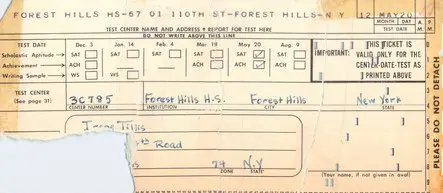 FOREST HILLS HS-67 01 110TH ST-FOREST HILLS-N Y 12 MAY20
TEST CENTER NAME AND ADDRESS • REPORT FOR TEST HERE MONTH DAY
DO NOT WRITE ABOVE THIS LINE TEST DATE
TEST DATE Dec. 3 Jan. 14 Feb. 4 Mar. 18 May 20 Aug. 9
Scholastic Aptitude SAT SAT SAT SAT SAT
Achievement ACH ACH ACH ACH
Writing Sample
IMPORTANT: THIS TICKET IS
VALID ONLY FOR THE
CENTER-DATE-TEST AS
PRINTED ABOVE
TEST CENTER
(See page 31) 3C795 Forest Hills H.S. Forest Hills New York
CENTER NUMBER INSTITUTION CITY STATE
Road
74 N.Y
ZONE STATE
(Your name, if not given in oval)
PLEASE DO NOT DETACH